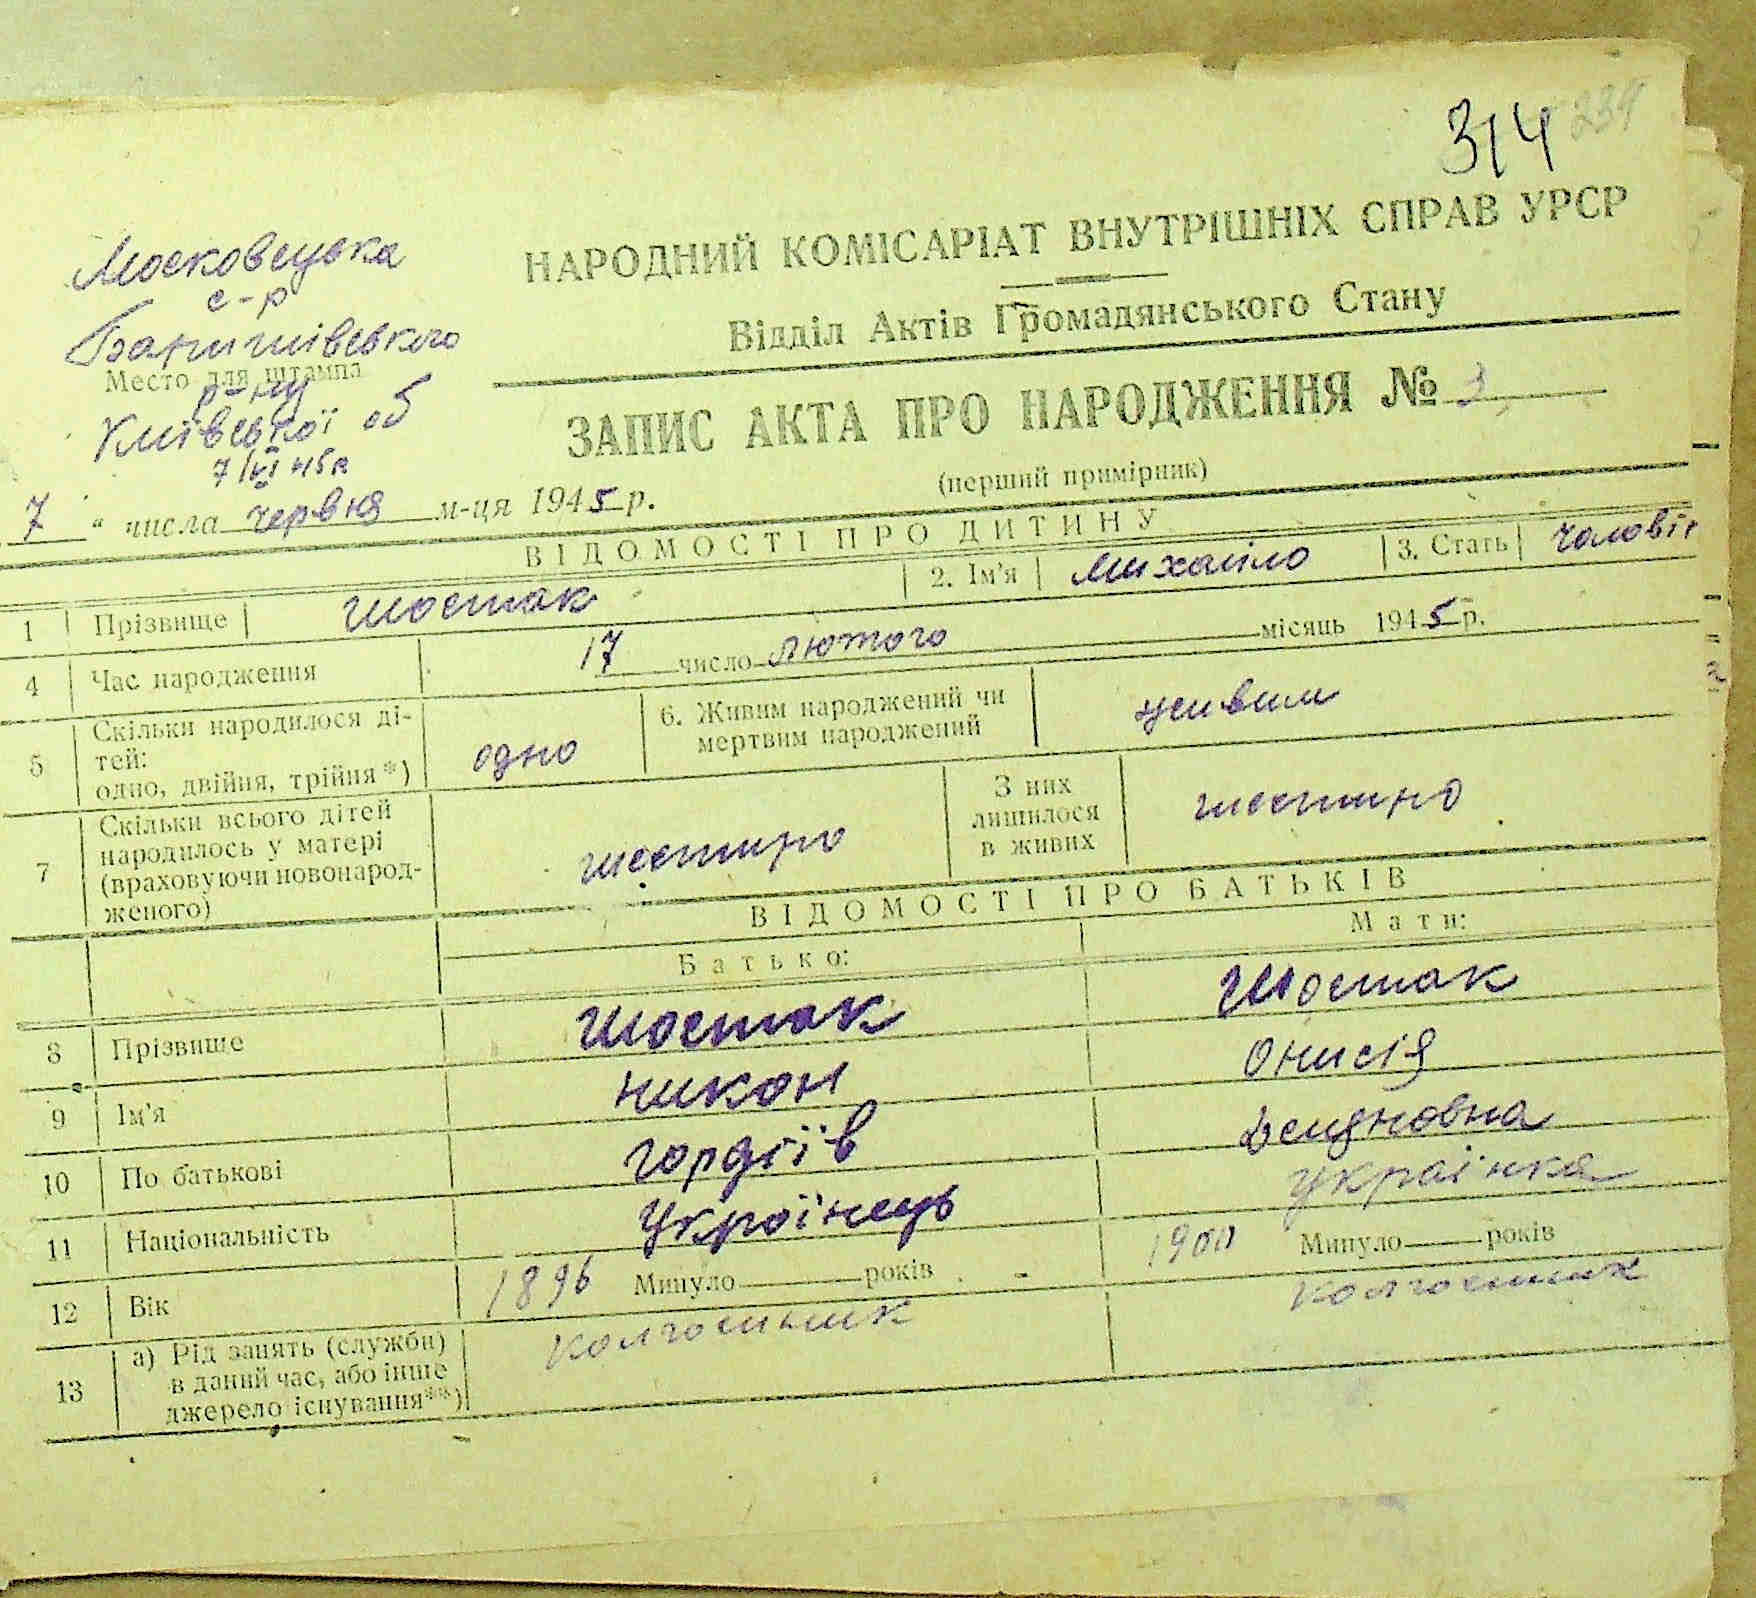 314 239
Московецька
с-р
Баришівського
Место для штампа
р-ну
Київської об
7/VI 45 р
НАРОДНИЙ КОМІСАРІАТ ВНУТРІШНІХ СПРАВ УРСР
Відділ Актів Громадянського Стану
ЗАПИС АКТА ПРО НАРОДЖЕННЯ № 3
(перший примірник)
7 " числа червня м-ця 1945 р.
ВІДОМОСТІ ПРО ДИТИНУ
1 Прізвище Шостак 2. Ім'я Михайло 3. Стать чоловіч
4 Час народження 17 число лютого місяць 1945 р.
5 Скільки народилося ді-
тей:
одно, двійня, трійня*) одно
6. Живим народжений чи
мертвим народжений живим
7 Скільки всього дітей
народилось у матері
(враховуючи новонарод-
женого) шестиро
З них
лишилося
в живих шестиро
ВІДОМОСТІ ПРО БАТЬКІВ
Батько: Мати:
8 Прізвище Шостак Шостак
9 Ім'я Никон Онисія
10 По батькові Гордіїв Демяновна
11 Національність Українець Українка
12 Вік 1896 Минуло років 1900 Минуло років
13 а) Рід занять (служби)
в даний час, або інше
джерело існування**) колгоспник колгоспник